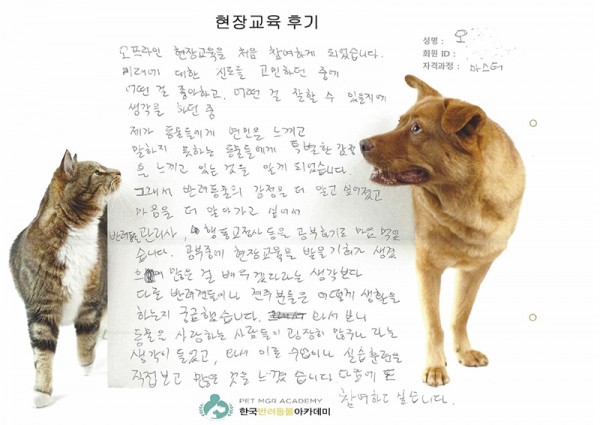 현장교육 후기
성명 : 오
회원 ID :
자격과정 : 마스터
오프라인 현장교육을 처음 참여하게 되었습니다.
미래에 대한 진로를 고민하던 중에
어떤 걸 좋아하고, 어떤 걸 잘할 수 있을지에
생각을 하던 중
제가 동물들에게 연민을 느끼고
말하지 못하는 동물들에게 특별한 감정
을 느끼고 있는 것을 알게 되었습니다.
그래서 반려동물의 감정을 더 알고 싶어졌고
마음을 더 알아가고 싶어서
반려동물관리사, 행동교정사 등을 공부하기로 마음 먹었
습니다. 공부중에 현장교육을 받을 기회가 생겼
으 많은 걸 배우겠다라는 생각보다
다른 반려견들이나 견주분들은 어떻게 생활을
하는지 궁금했습니다. 와서 보니
동물을 사랑하는 사람들이 굉장히 많구나 라는
생각이 들었고, 와서 이론 수업이나 실습훈련을
직접보고 많은 것을 느꼈습니다 다음에 또
참여하고 싶습니다.
PET MGR ACADEMY
한국반려동물아카데미